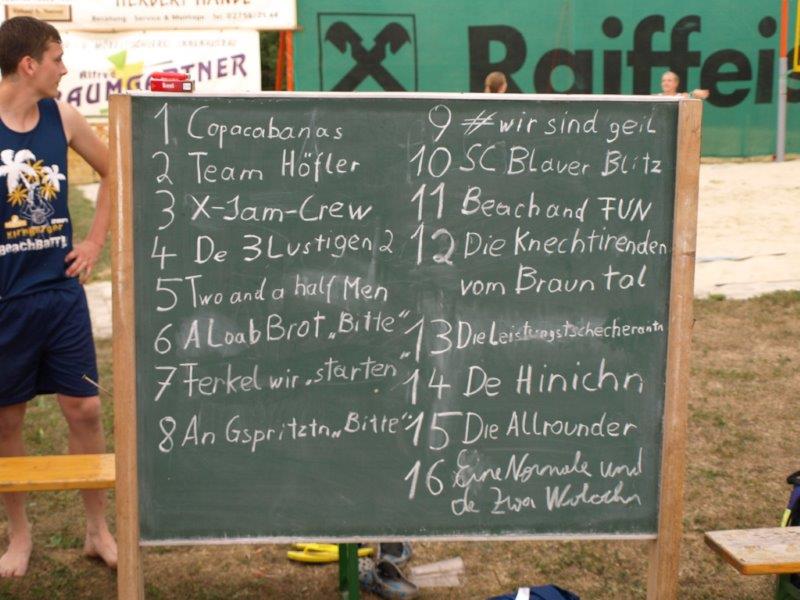 HERBERT HANDL
Beratung Service & Montage
Alfred
BAUMGARTNER
Raiffeis
BeachBarry
1 Copacabanas
2 Team Höfler
3 X-Jam-Crew
4 De 3 Lustigen 2
5 Two and a half Men
6 A Loab Brot „Bitte"
7 Ferkel wir „starten"
8 An Gspritztn „Bitte"
9 #wir sind geil
10 SC Blauer Blitz
11 Beach and FUN
12 Die Knechtirenden
vom Brauntal
13 Die Leistungstschecherantn
14 De Hinichn
15 Die Allrounder
16 Eine Normale und
de Zwa Wolochn